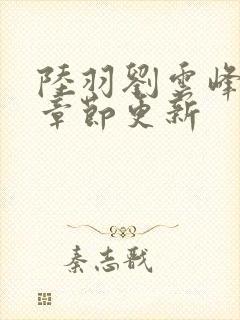 陸羽劉雲峰
章節更新
秦志戬